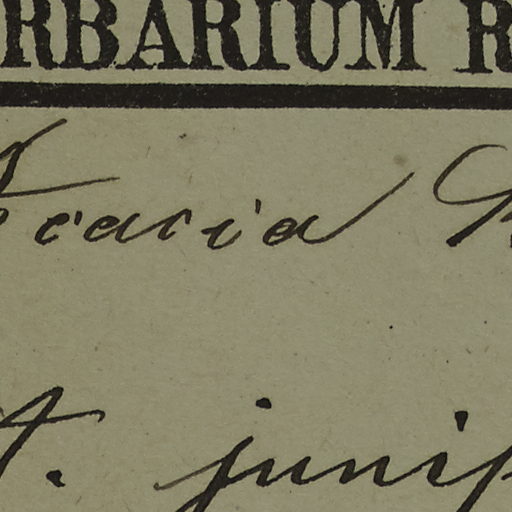 RBARIUM R
Acacia
A. junip